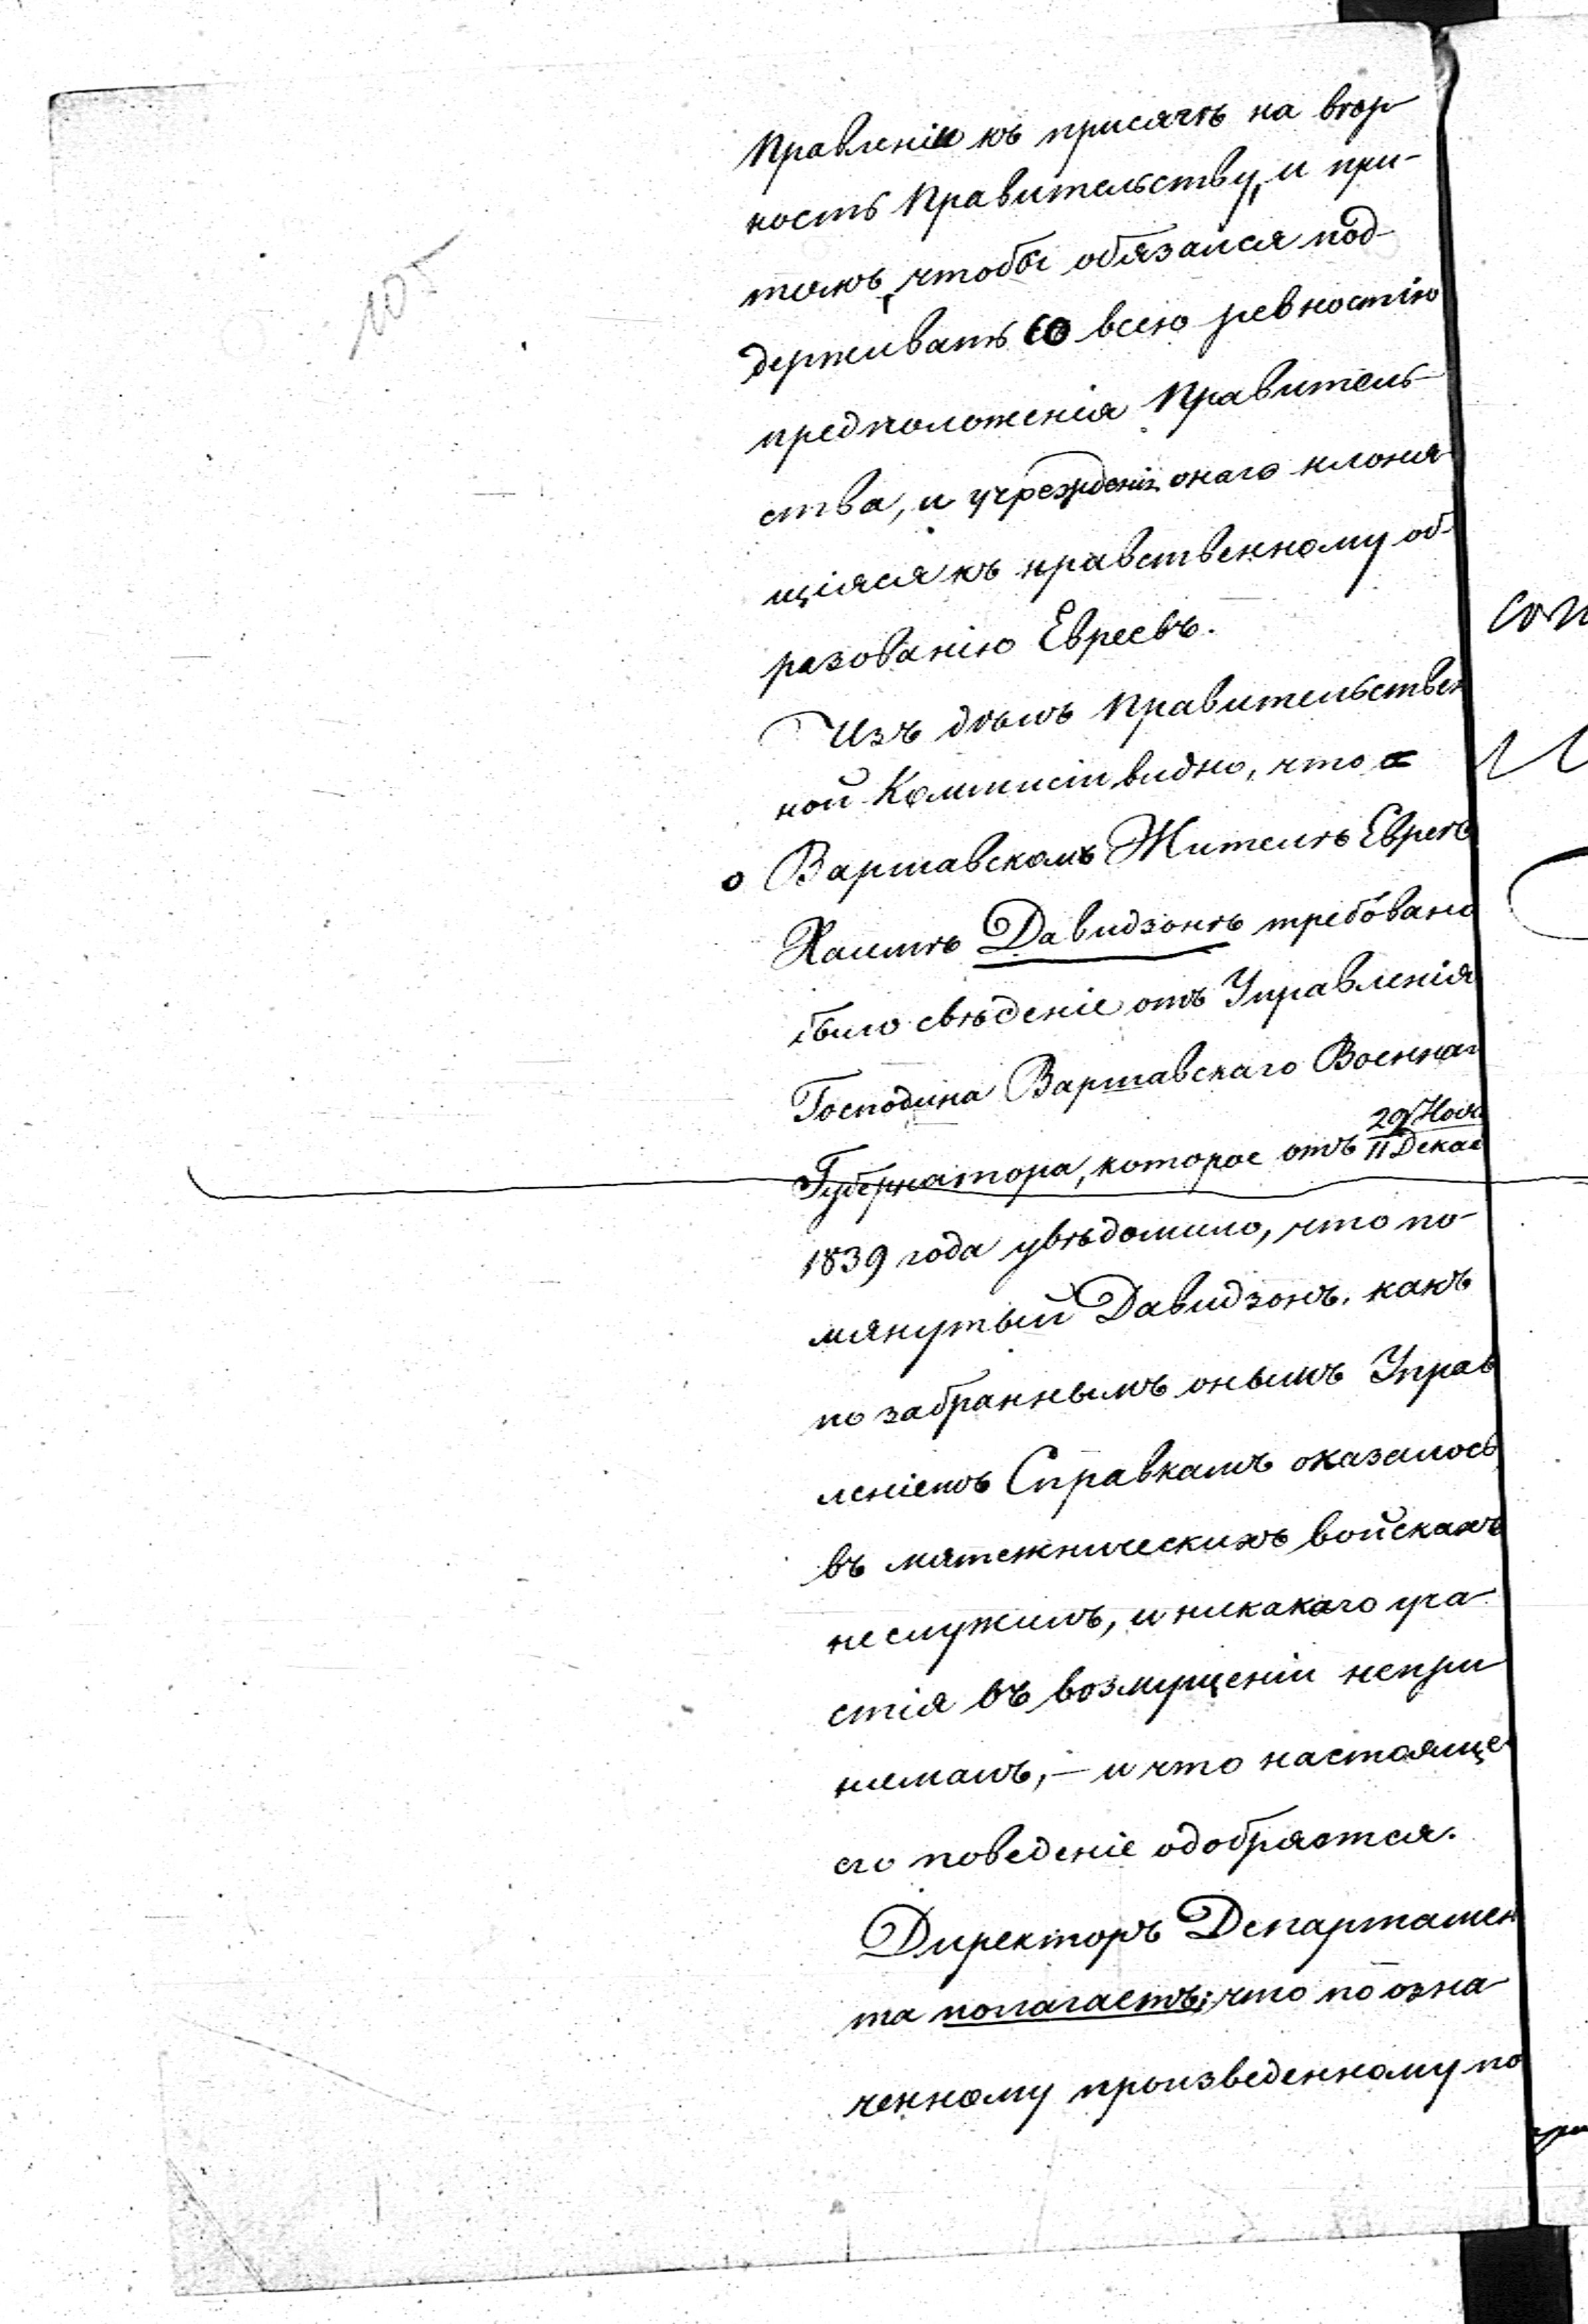 105
Правленіи къ присягѣ на вѣр-
ность Правительству, и при-
томъ, чтобы обязался под-
держивать со всею ревностію
предположенія Правитель-
ства, и учрежденія онаго клоня-
щіяся къ нравственному об-
разованію Евреевъ.
Изъ дѣлъ Правительствен
ной Коммисіи видно, что
о Варшавскомъ Жителѣ Евреѣ
Хаимѣ Давидзонѣ требовано
было свѣденіе отъ Управленія
Господина Варшавскаго Военнаг
29 Нояб
Губернатора, которое отъ 11 Декаб
1839 года увѣдомило, что по-
мянутый Давидзонъ, какъ
по забраннымъ онымъ Управ
леніемъ Справкамъ оказалось
въ мятежническихъ войскахъ
не служилъ, и никакаго уча-
стія въ возмущеніи непри-
нималъ, — и что настояще
его поведеніе одобряется.
Директоръ Департамен
та полагаетъ; что по озна-
ченному произведенному по